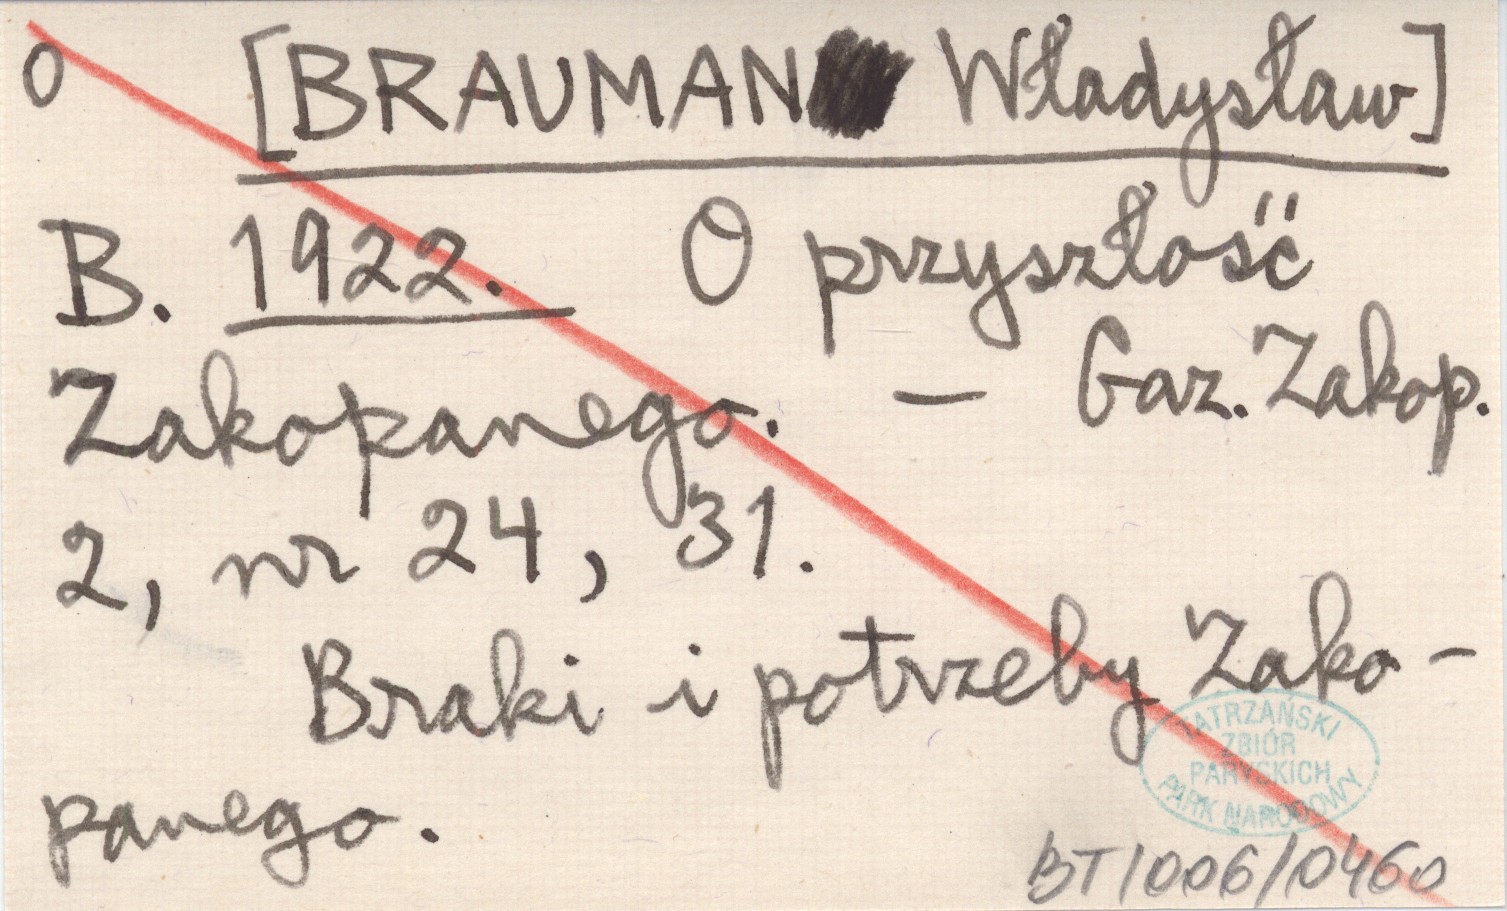 O [BRAUMAN Władysław]
B. 1922. O przyszłość
Zakopanego. – Gaz. Zakop.
2, nr 24, 31.
Braki i potrzeby Zako-
panego.
TATRZAŃSKI
ZBIÓR
PARYSKICH
PARK NARODOWY
BT/006/0460